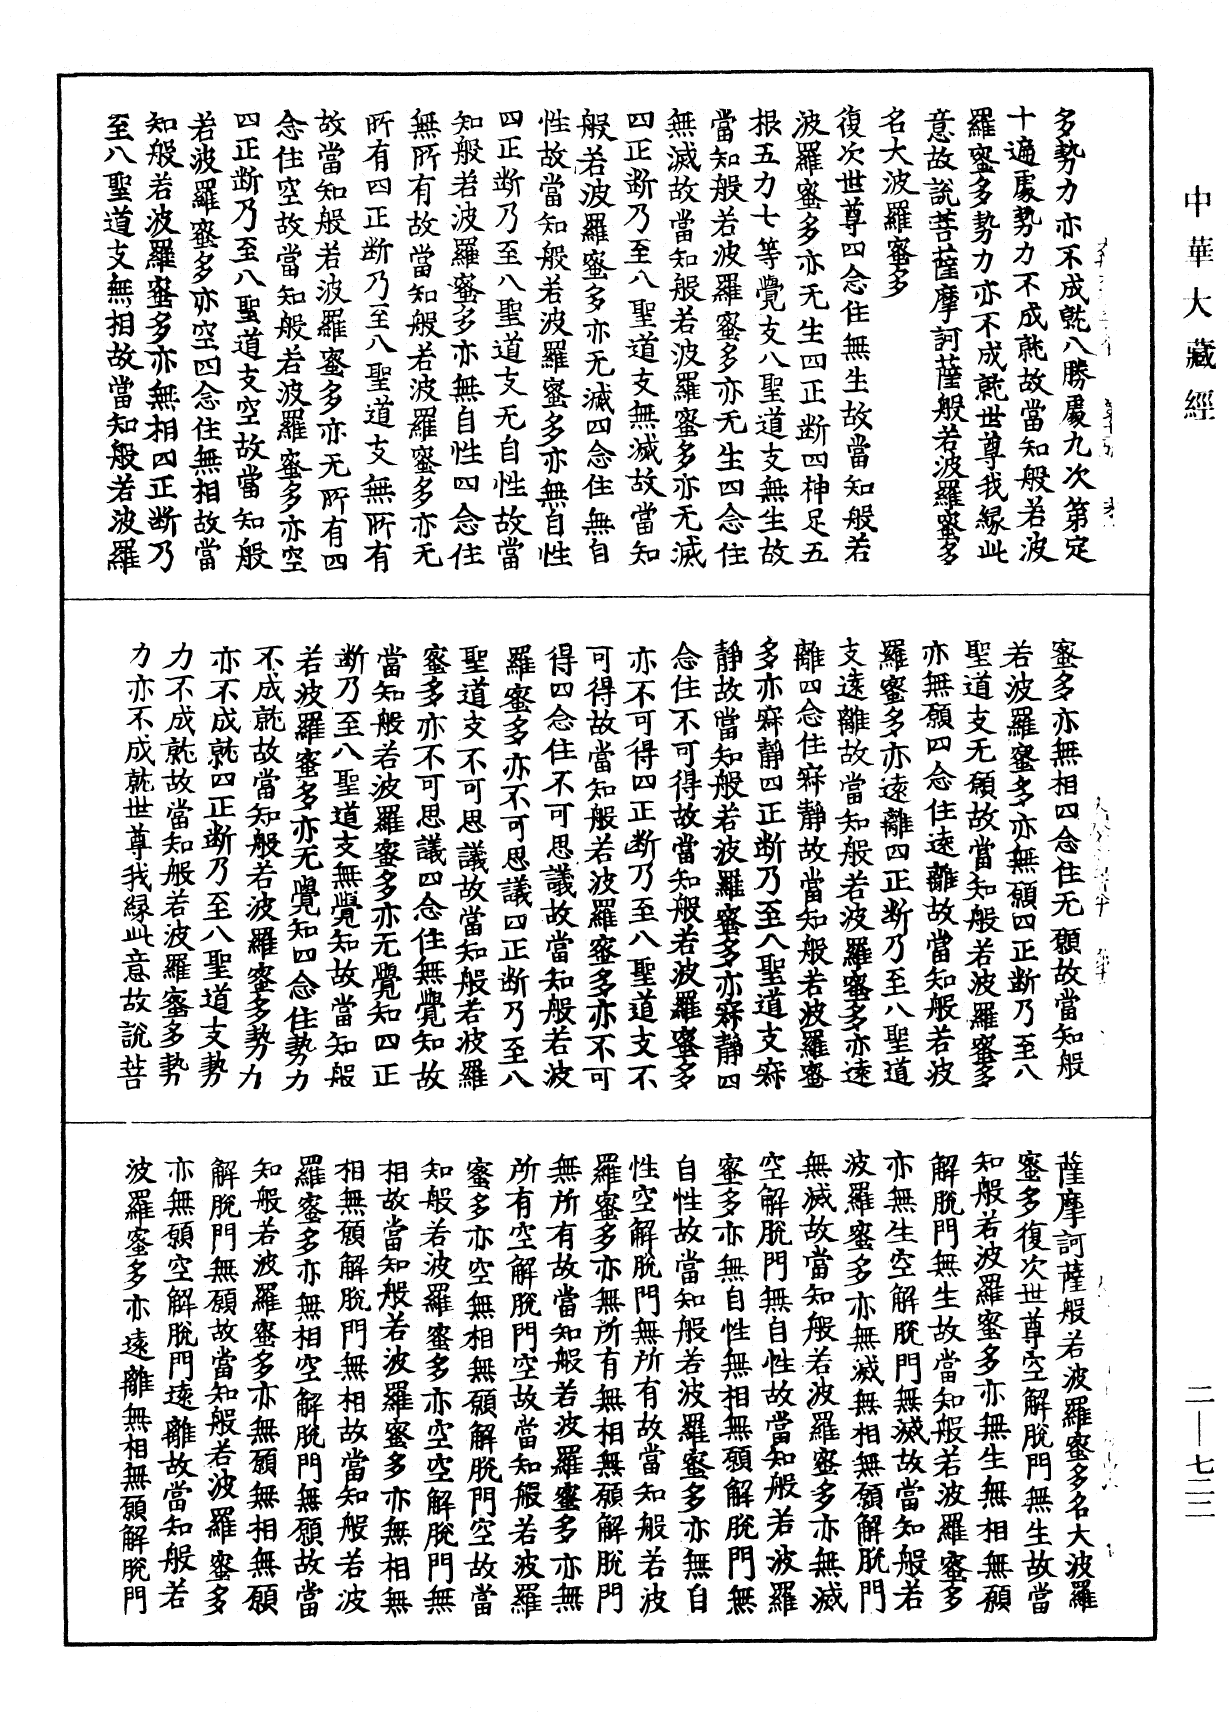 中華大藏經
多勢力亦不成就八勝處九次第定
十遍處勢力不成就故當知般若波
羅蜜多勢力亦不成就世尊我緣此
意故說菩薩摩訶薩般若波羅蜜多
名大波羅蜜多
復次世尊四念住無生故當知般若
波羅蜜多亦无生四正断四神足五
根五力七等覺支八聖道支無生故
當知般若波羅蜜多亦无生四念住
無滅故當知般若波羅蜜多亦无滅
四正断乃至八聖道支無滅故當知
般若波羅蜜多亦无滅四念住無自
性故當知般若波羅蜜多亦無自性
四正断乃至八聖道支无自性故當
知般若波羅蜜多亦無自性四念住
無所有故當知般若波羅蜜多亦无
所有四正断乃至八聖道支無所有
故當知般若波羅蜜多亦无所有四
念住空故當知般若波羅蜜多亦空
四正断乃至八聖道支空故當知般
若波羅蜜多亦空四念住無相故當
知般若波羅蜜多亦無相四正断乃
至八聖道支無相故當知般若波羅
蜜多亦無相四念住无願故當知般
若波羅蜜多亦無願四正断乃至八
聖道支无願故當知般若波羅蜜多
亦無願四念住遠離故當知般若波
羅蜜多亦遠離四正断乃至八聖道
支遠離故當知般若波羅蜜多亦遠
離四念住寂静故當知般若波羅蜜
多亦寂静四正断乃至八聖道支寂
静故當知般若波羅蜜多亦寂静四
念住不可得故當知般若波羅蜜多
亦不可得四正断乃至八聖道支不
可得故當知般若波羅蜜多亦不可
得四念住不可思議故當知般若波
羅蜜多亦不可思議四正断乃至八
聖道支不可思議故當知般若波羅
蜜多亦不可思議四念住無覺知故
當知般若波羅蜜多亦无覺知四正
断乃至八聖道支無覺知故當知般
若波羅蜜多亦无覺知四念住勢力
不成就故當知般若波羅蜜多勢力
亦不成就四正断乃至八聖道支勢
力不成就故當知般若波羅蜜多勢
力亦不成就世尊我緣此意故說菩
薩摩訶薩般若波羅蜜多名大波羅
蜜多復次世尊空解脫門無生故當
知般若波羅蜜多亦無生無相無願
解脫門無生故當知般若波羅蜜多
亦無生空解脫門無滅故當知般若
波羅蜜多亦無滅無相無願解脫門
無滅故當知般若波羅蜜多亦無滅
空解脫門無自性故當知般若波羅
蜜多亦無自性無相無願解脫門無
自性故當知般若波羅蜜多亦無自
性空解脫門無所有故當知般若波
羅蜜多亦無所有無相無願解脫門
無所有故當知般若波羅蜜多亦無
所有空解脫門空故當知般若波羅
蜜多亦空無相無願解脫門空故當
知般若波羅蜜多亦空空解脫門無
相故當知般若波羅蜜多亦無相無
相無願解脫門無相故當知般若波
羅蜜多亦無相空解脫門無願故當
知般若波羅蜜多亦無願無相無願
解脫門無願故當知般若波羅蜜多
亦無願空解脫門遠離故當知般若
波羅蜜多亦遠離無相無願解脫門
二—七二二